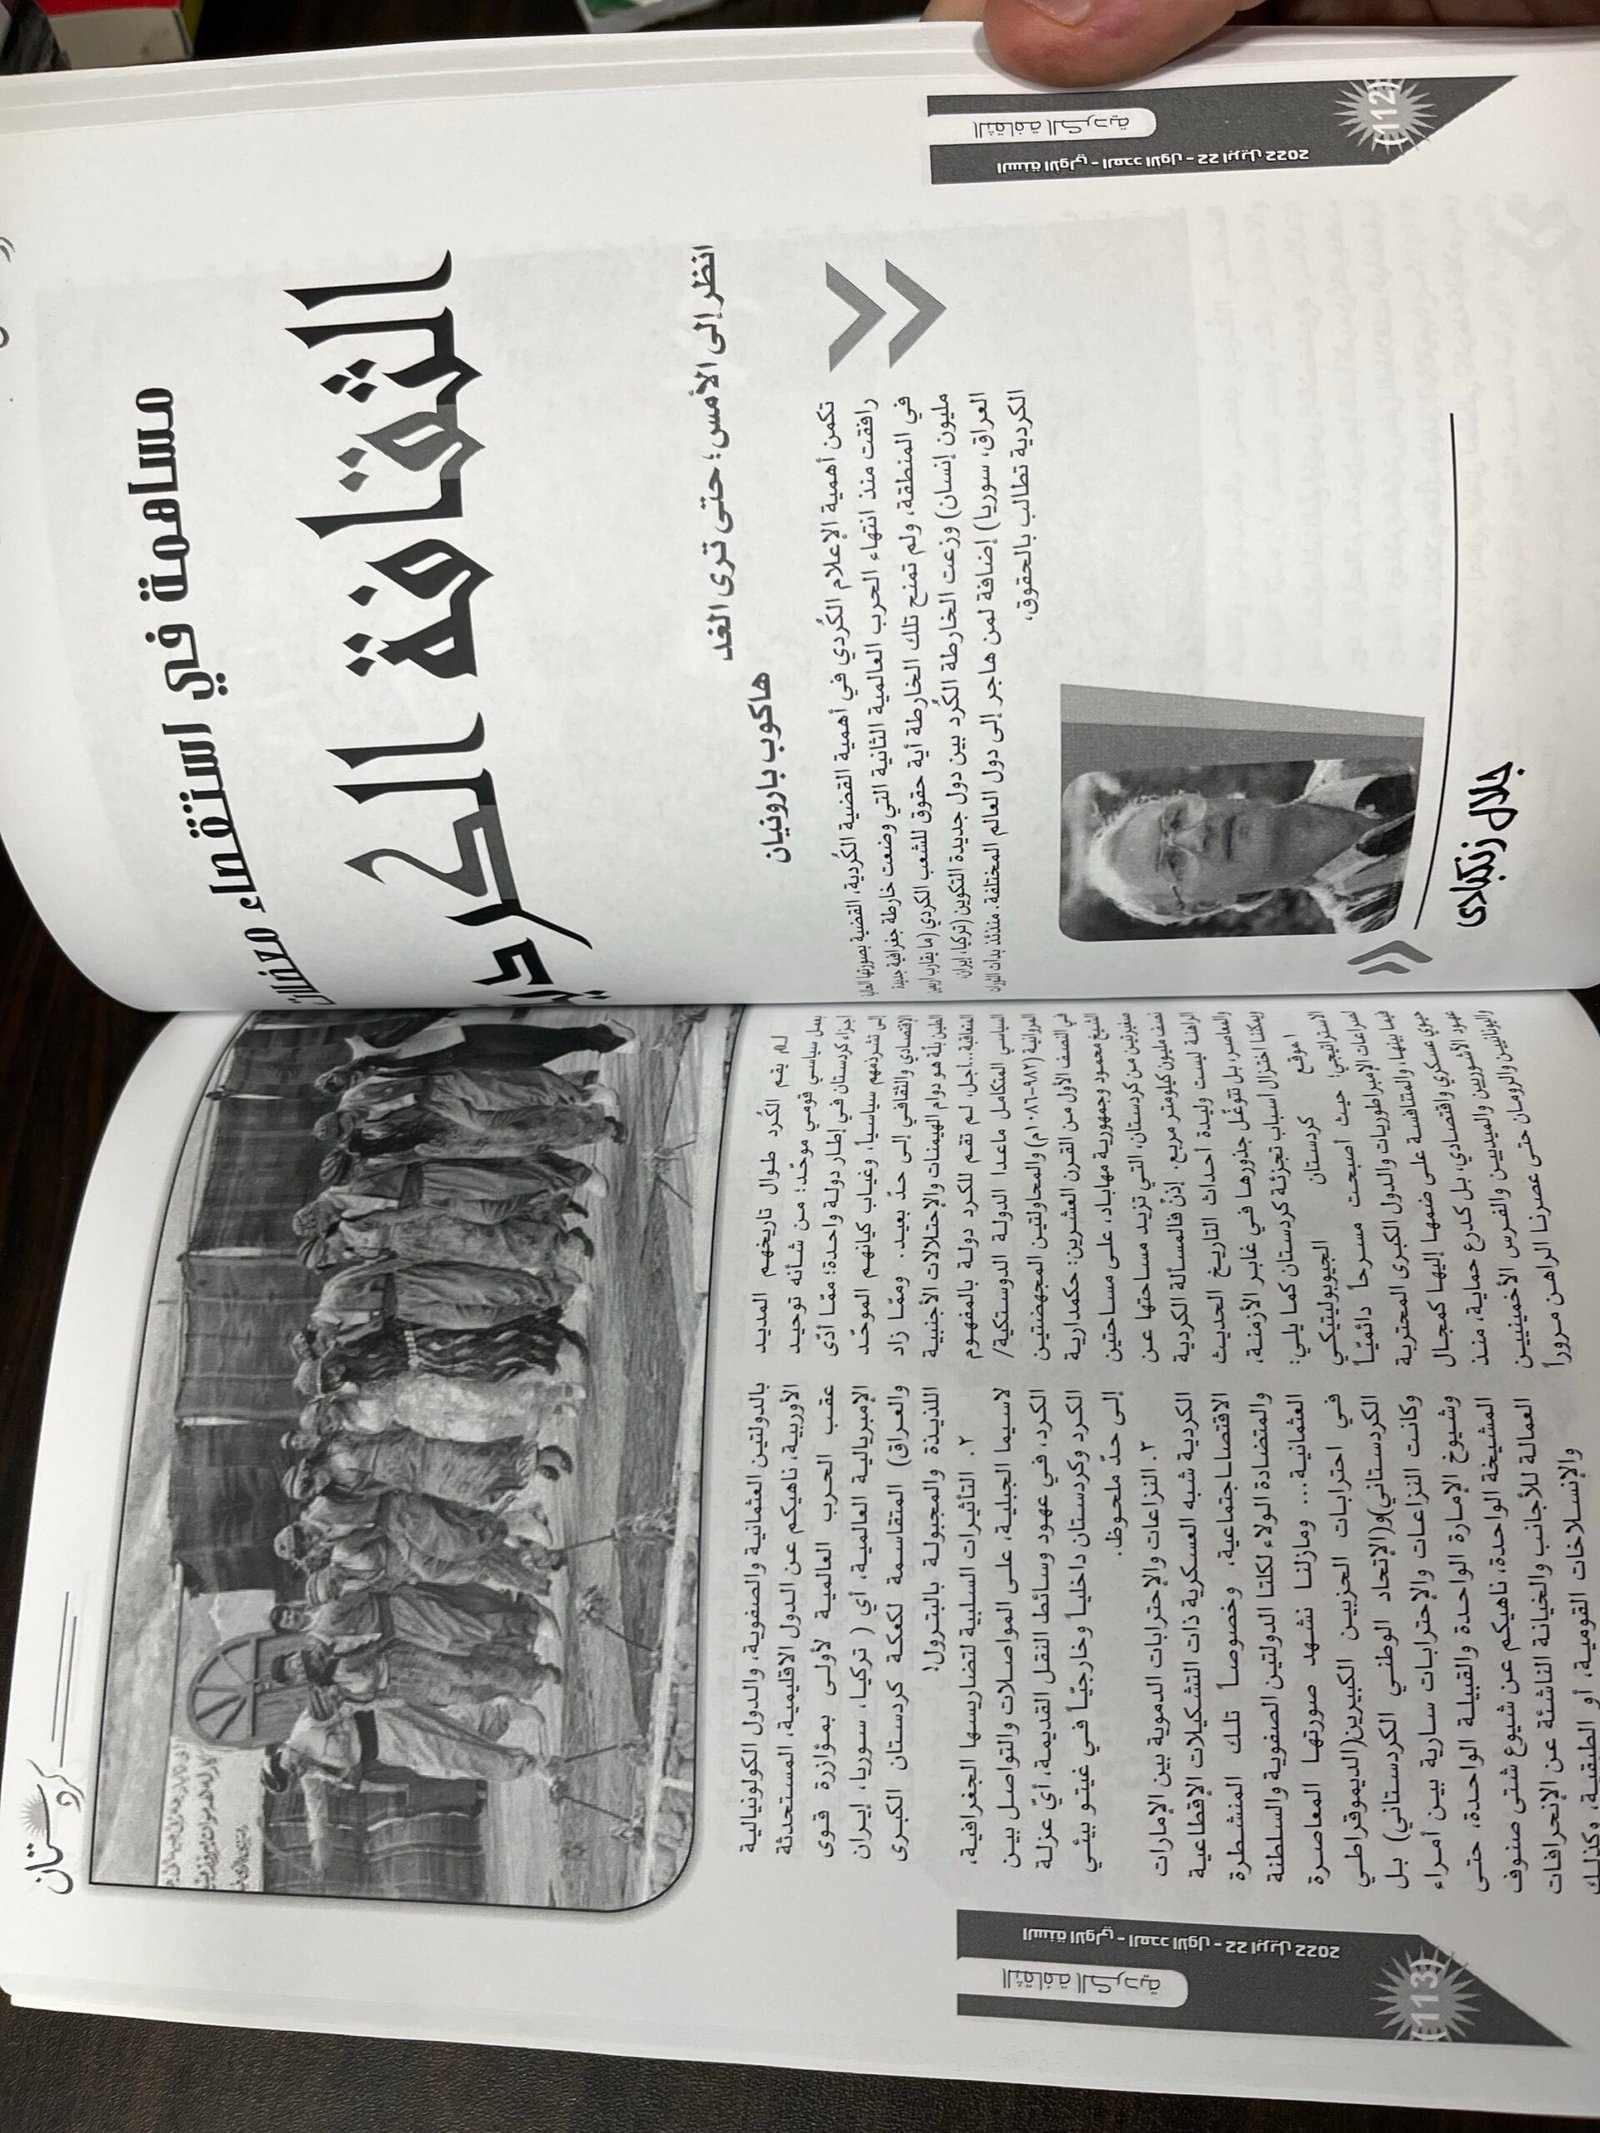 مساهمة في استقصاء معضلات
الثقافة الكردية
انظر إلى الأمس؛ حتى ترى الغد
هاكوب بارونيان
تكمن أهمية الإعلام الكُردي في أهمية القضية الكُردية، القضية بصورتها الحالية
رافقت منذ انتهاء الحرب العالمية الثانية التي وضعت خارطة جغرافية جديدة
في المنطقة، ولم تمنح تلك الخارطة أية حقوق للشعب الكردي (ما يقارب اربعين
مليون إنسان) وزعت الخارطة الكُرد بين دول جديدة التكوين (تركيا، ايران
العراق، سوريا) إضافة لمن هاجر إلى دول العالم المختلفة. منذئذ بدأت الثورات
الكردية تطالب بالحقوق،
جلال زنكبادى
الثقافة الكردية
السنة الأولى - العدد الأول - 22 ابريل 2022
(112)
كردستان
لم يقم الكُرد طوال تاريخهم المديد
بعمل سياسي قومي موحّد؛ من شأنه توحيد
اجزاء كردستان في إطار دولة واحدة؛ ممّا أدّى
إلى تشرذمهم سياسياً، وغياب كيانهم الموحّد
الإقتصادي والثقافي إلى حدّ بعيد. وممّا زاد
الطين بلّة هو دوام الهيمنات والإحتلالات الأجنبية
المتعاقبة...أجل، لم تقم للكرد دولة بالمفهوم
السياسي المتكامل ماعدا الدولة الدوستكية/
المروانية (٩٨٢-١٠٨٦م) والمحاولتين المجهضتين
في النصف الأول من القرن العشرين: حكمدارية
الشيخ محمود وجمهورية مهاباد، على مساحتين
صغيرتين من كردستان، التي تزيد مساحتها عن
نصف مليون كيلومتر مربع. إذنْ فالمسألة الكردية
الراهنة ليست وليدة أحداث التاريخ الحديث
والمعاصر، بل تتوغّل جذورها في غابر الأزمنة،
ويمكننا اختزال أسباب تجزئة كردستان كما يلي:
١موقع كردستان الجيوبوليتيكي
الاستراتيجي؛ حيث أصبحت مسرحاً دائميّاً
لصراعات الإمبراطوريات والدول الكبرى المحتربة
فيما بينها، والمتنافسة على ضمها إليها كمجال
حيوي عسكري واقتصادي، بل كدرع حماية، منذ
عهود الآشوريين والميديين والفرس الأخمينيين
واليونانيين والرومان حتى عصرنا الراهن مروراً
بالدولتين العثمانية والصفوية، والدول الكولونيالية
الأوربية، ناهيكم عن الدول الاقليمية، المستحدثة
عقب الحرب العالمية لأولى بمؤازرة قوى
الإمبريالية العالمية، أي ( تركيا، سوريا، إيران
والعراق) المتقاسمة لكعكة كردستان الكبرى
اللذيذة والمجبولة بالبترول!
٢. التأثيرات السلبية لتضاريسها الجغرافية،
لاسيما الجبلية، على المواصلات والتواصل بين
الكرد، في عهود وسائط النقل القديمة، أيّ عزلة
الكرد وكردستان داخلياً وخارجيّاً في غيتو بيئي
إلى حدّ ملحوظ.
٣. النزاعات والإحترابات الدموية بين الإمارات
الكردية شبه العسكرية ذات التشكيلات الإقطاعية
الاقتصاـاجتماعية، وخصوصاً تلك المنشطرة
والمتضادة الولاء لكلتا الدولتين الصفوية والسلطنة
العثمانية... ومازلنا نشهد صورتها المعاصرة
في احترابات الحزبين الكبيرين(الديموقراطي
الكردستاني)و(الإتحاد الوطني الكردستاني) بل
وكانت النزاعات والإحترابات سارية بين أمراء
وشيوخ الإمارة الواحدة والقبيلة الواحدة، حتى
المشيخة الواحدة، ناهيكم عن شيوع شتى صنوف
العمالة للأجانب والخيانة الناشئة عن الإنحرافات
والإنسلاخات القومية، أو الطبقية، وكذلك
الثقافة الكردية
السنة الأولى - العدد الأول - 22 ابريل 2022
(113)